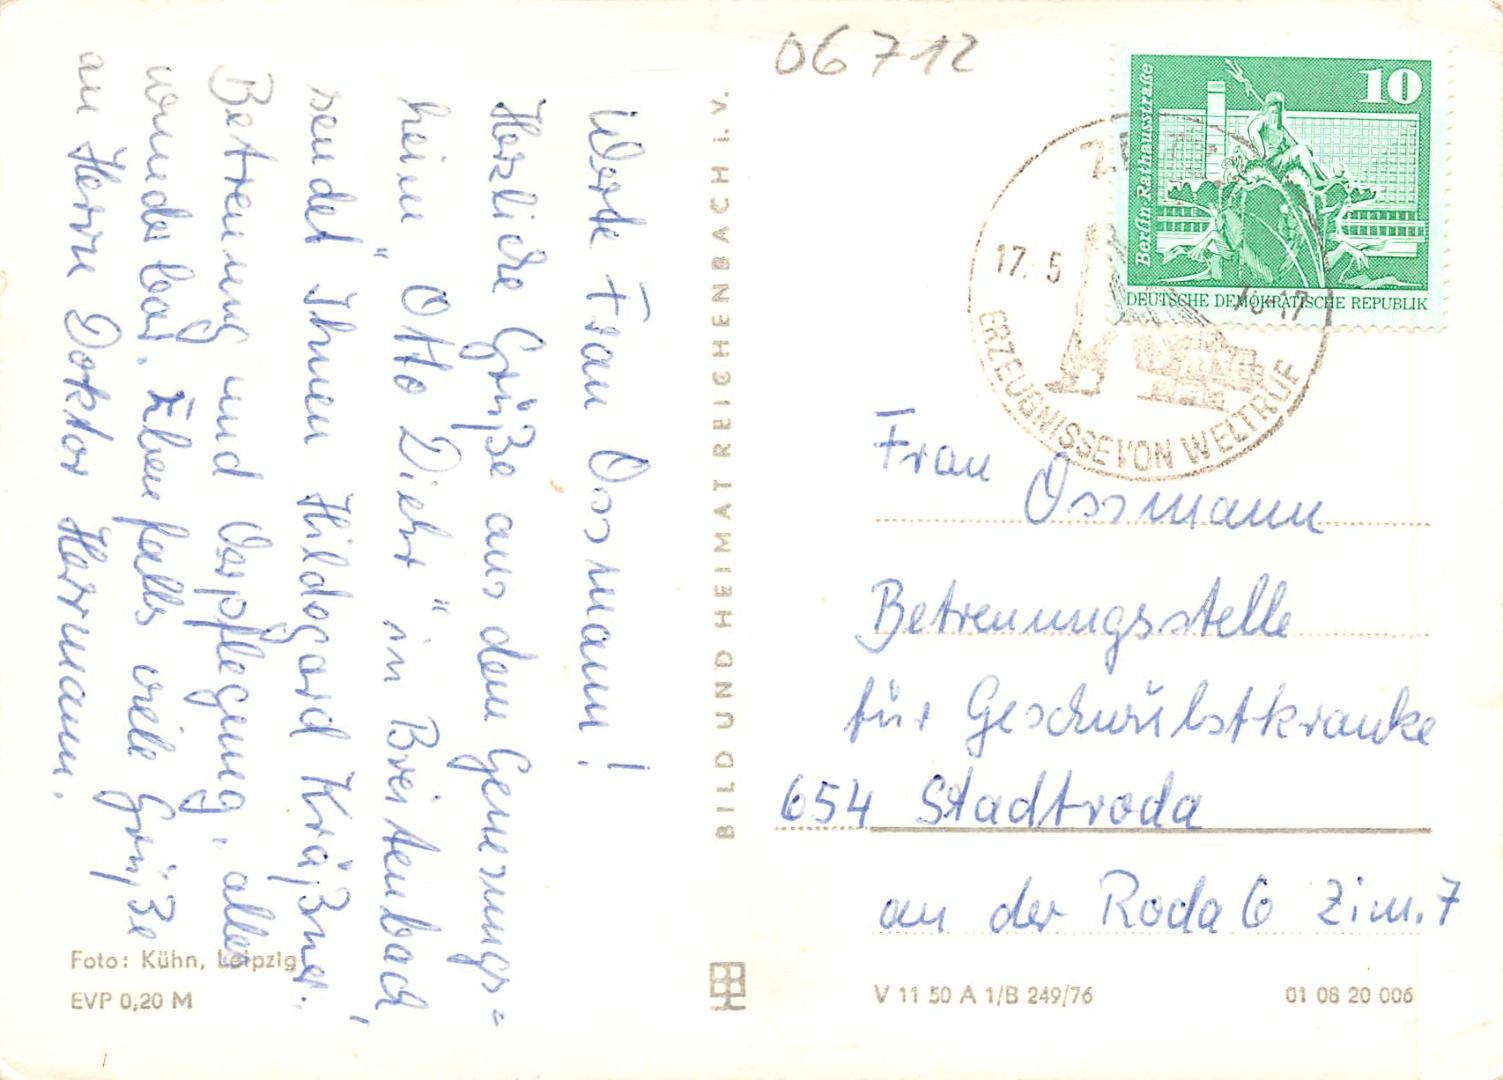 Werte Frau Ossmann!
Herzliche Grüße aus dem Genesungs=
heim "Otto Diehr" in Breitenbach,
sendet Ihnen Hildegard Kräßner.
Betreuung und Verpflegung, alles
wunderbar. Ebenfalls viele Grüße
an Herrn Doktor Herrmann.
Foto: Kühn, Leipzig
EVP 0,20 M
BILD UND HEIMAT REICHENBACH I. V.
06712
10
Berlin Rathausstraße
DEUTSCHE DEMOKRATISCHE REPUBLIK
17. 5
-17
ERZEUGNISSE VON WELTRUF
Frau Ossmann
Betreuungsstelle
für Geschwulstkranke
654 Stadtroda
an der Roda 6 Zim. 7
V 11 50 A 1/B 249/76
01 08 20 006